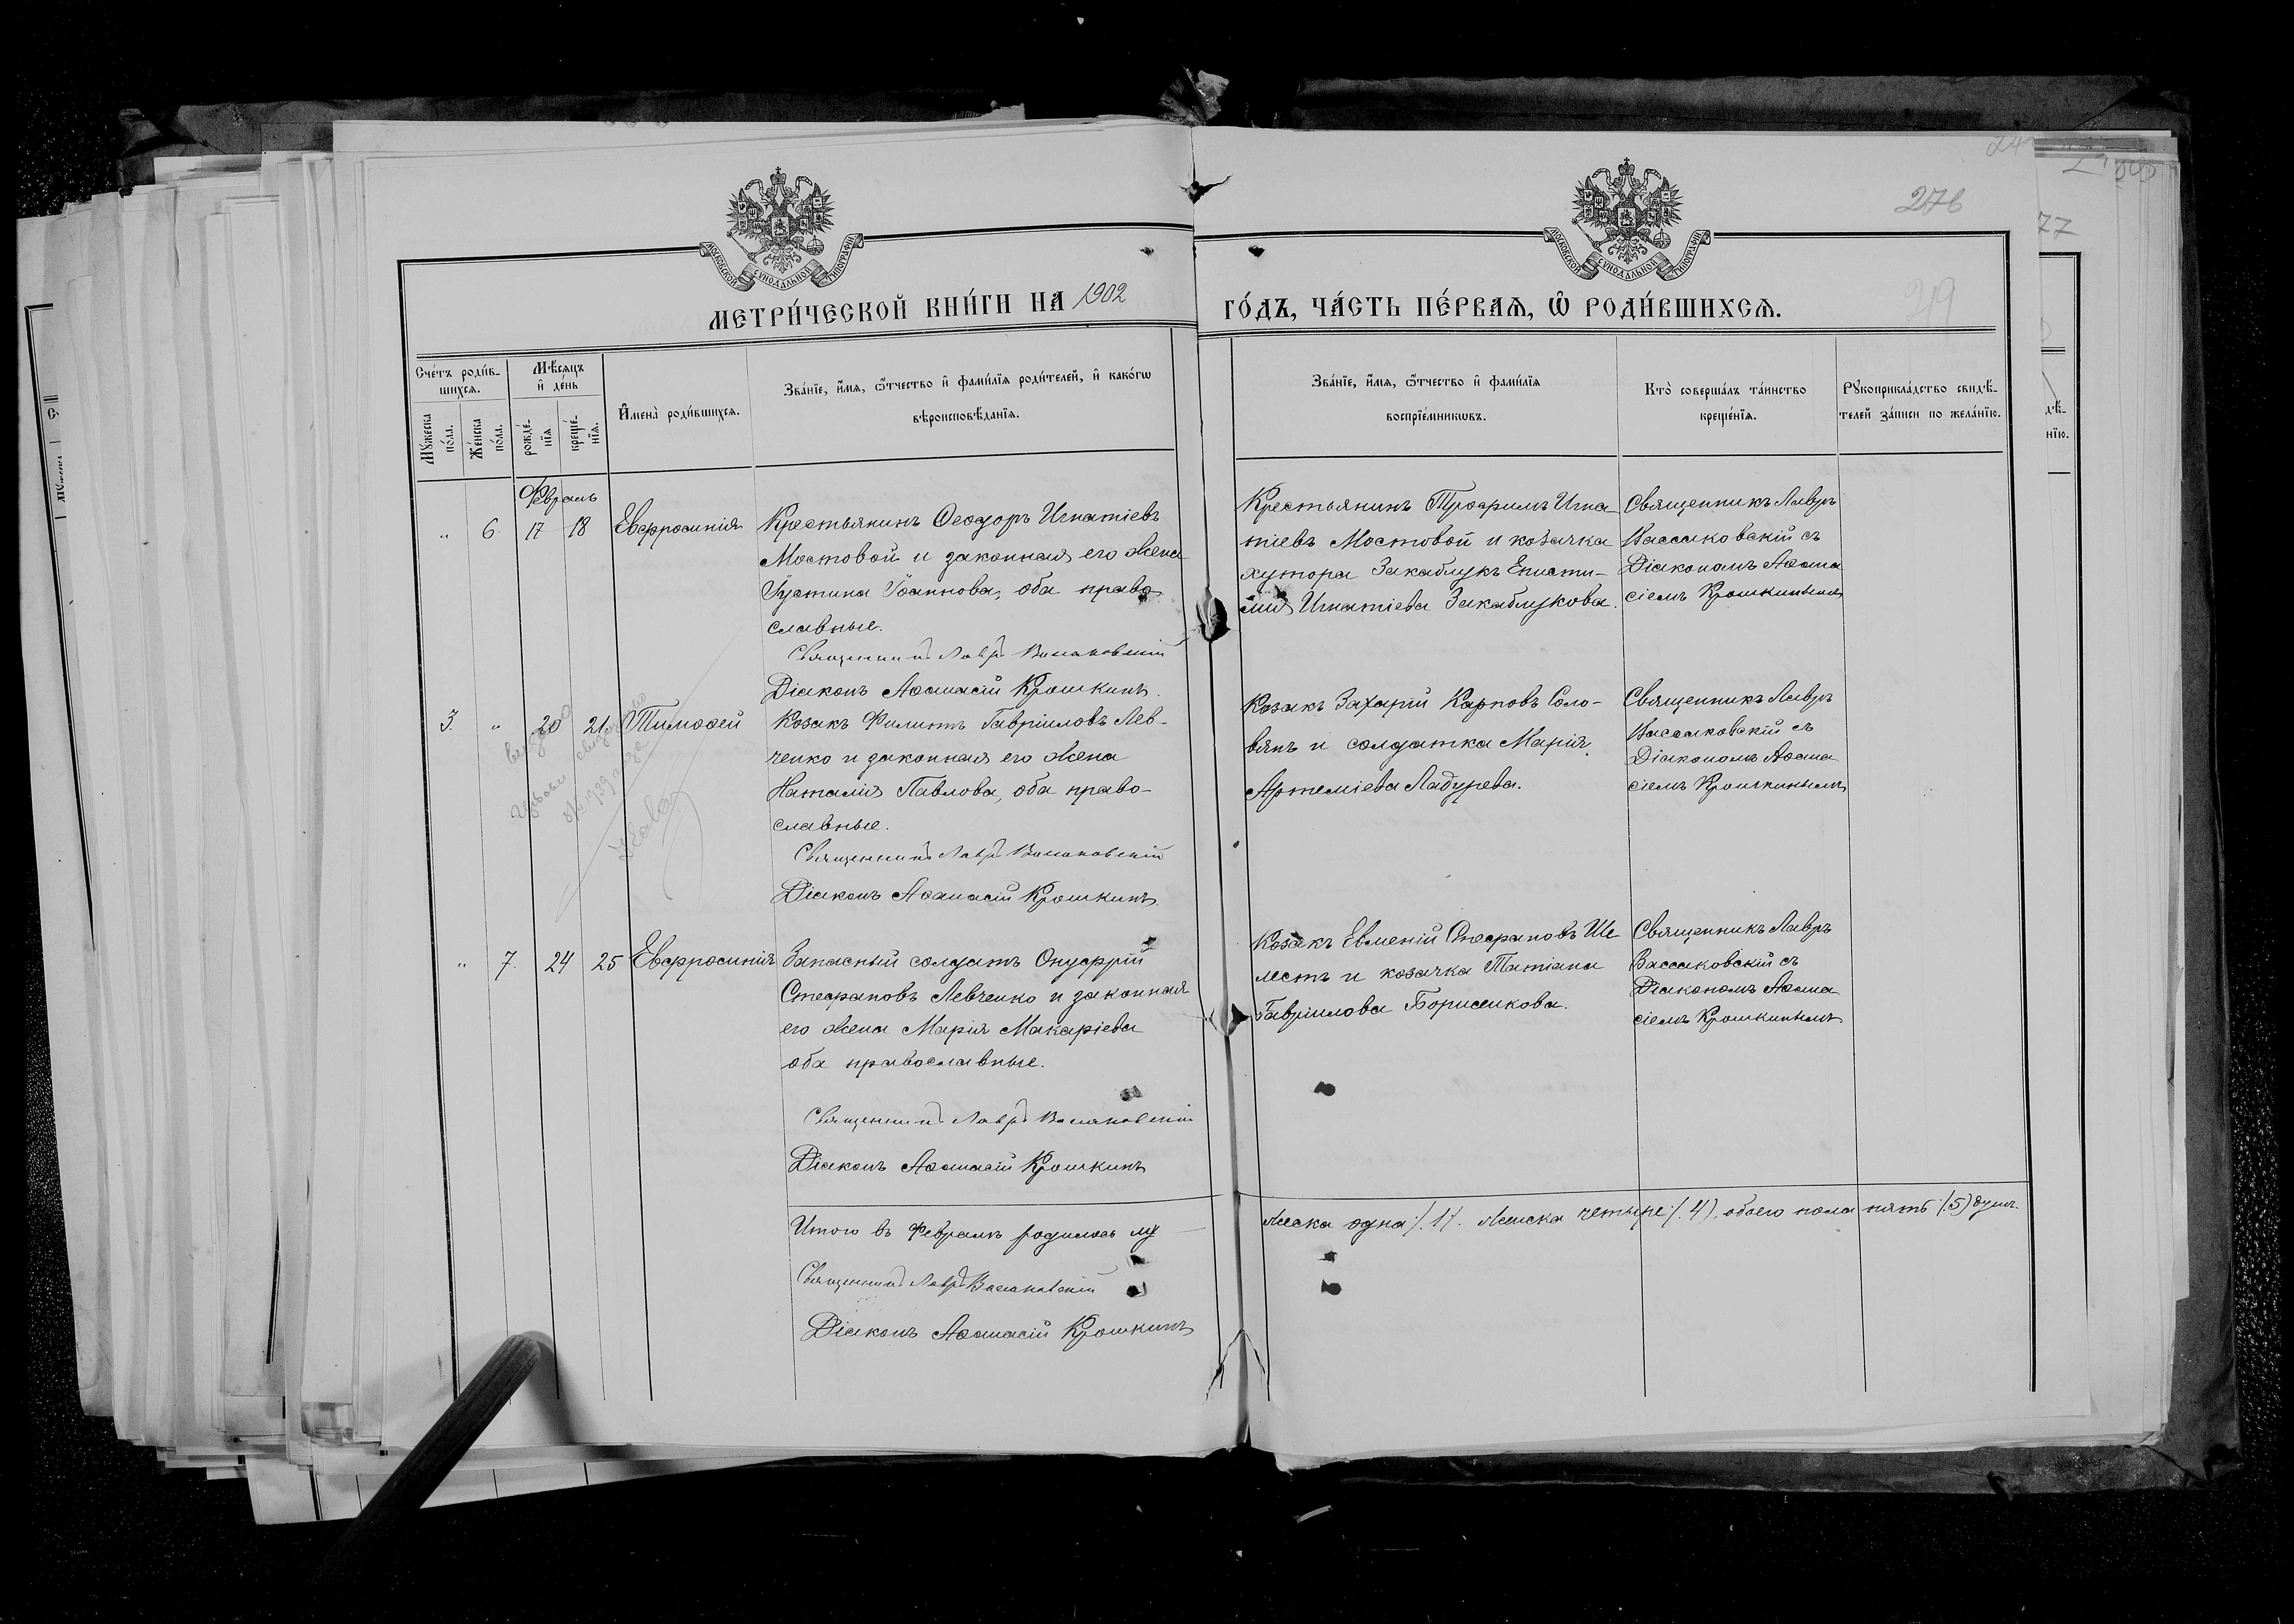 276
МОСКОВСКОЙ СѴНОДАЛЬНОЙ ТИПОГРАФІИ
МОСКОВСКОЙ СѴНОДАЛЬНОЙ ТИПОГРАФІИ
МЕТРИ́ЧЕСКОЙ КНИ́ГИ НА 1902 ГО́ДЪ, ЧА́СТЬ ПЕ́РВАѦ, Ѽ РОДИ́ВШИХСѦ.
Сче́тъ роди́в-
шихсѧ.
Мꙋ́жеска по́ла.
Же́нска по́ла.
Мѣ́сѧцъ
и҆ де́нь
рожде́-
нїѧ
креще́-
нїѧ.
И҆мена̀ роди́вшихсѧ.
Зва́нїе, и҆́мѧ, ѻ҆́тчество и҆ фами́лїѧ роди́телей, и҆ како́гѡ
вѣроисповѣ́данїѧ.
Зва́нїе, и҆́мѧ, ѻ҆́тчество и҆ фами́лїѧ
воспрїе́мникѡвъ.
Кто̀ соверша́лъ та́инство
креще́нїѧ.
Рꙋкоприкла́дство свидѣ́-
телей за́писи по жела́нїю.
Февраль
„ 6 17 18 Евфросинія
Крестьянинъ Ѳеодоръ Игнатіевъ
Мостовой и законная его жена
Іустина Іоаннова, оба право-
славные.
Священникъ Лавръ Вассаковскій
Діаконъ Аѳанасій Крошкинъ.
Крестьянинъ Трофимъ Игна-
тіевъ Мостовой и козачка
хутора Закаблукъ Еписти-
мія Игнатіева Закаблукова.
Священникъ Лавръ
Вассаковскій съ
Діакономъ Аѳана
сіемъ Крошкинымъ
3. „ 20 21 Тимоѳей
Козакъ Филиппъ Гавріиловъ Лев-
ченко и законная его жена
Наталія Павлова, оба право-
славные.
Священникъ Лавръ Вассаковскій
Діаконъ Аѳанасій Крошкинъ.
Козакъ Захарій Карповъ Соло-
вянъ и солдатка Марія
Артеміева Ладурева.
Священникъ Лавръ
Вассаковскій съ
Діакономъ Аѳана
сіемъ Крошкинымъ
„ 7. 24 25 Евфросинія
Запасный солдатъ Онуфрій
Стефановъ Левченко и законная
его жена Марія Макаріева
оба православные.
Священникъ Лавръ Вассаковскій
Діаконъ Аѳанасій Крошкинъ
Козакъ Евменій Стефановъ Ше-
лестъ и козачка Татіана
Гавріилова Борисенкова.
Священникъ Лавръ
Вассаковскій съ
Діакономъ Аѳана
сіемъ Крошкинымъ
Итого въ Февралѣ родилось му
жеска одна /. 1/. Женска четыре /. 4), обоего пола пять /. 5) душъ.
Священникъ Лавръ Вассаковскій
Діаконъ Аѳанасій Крошкинъ